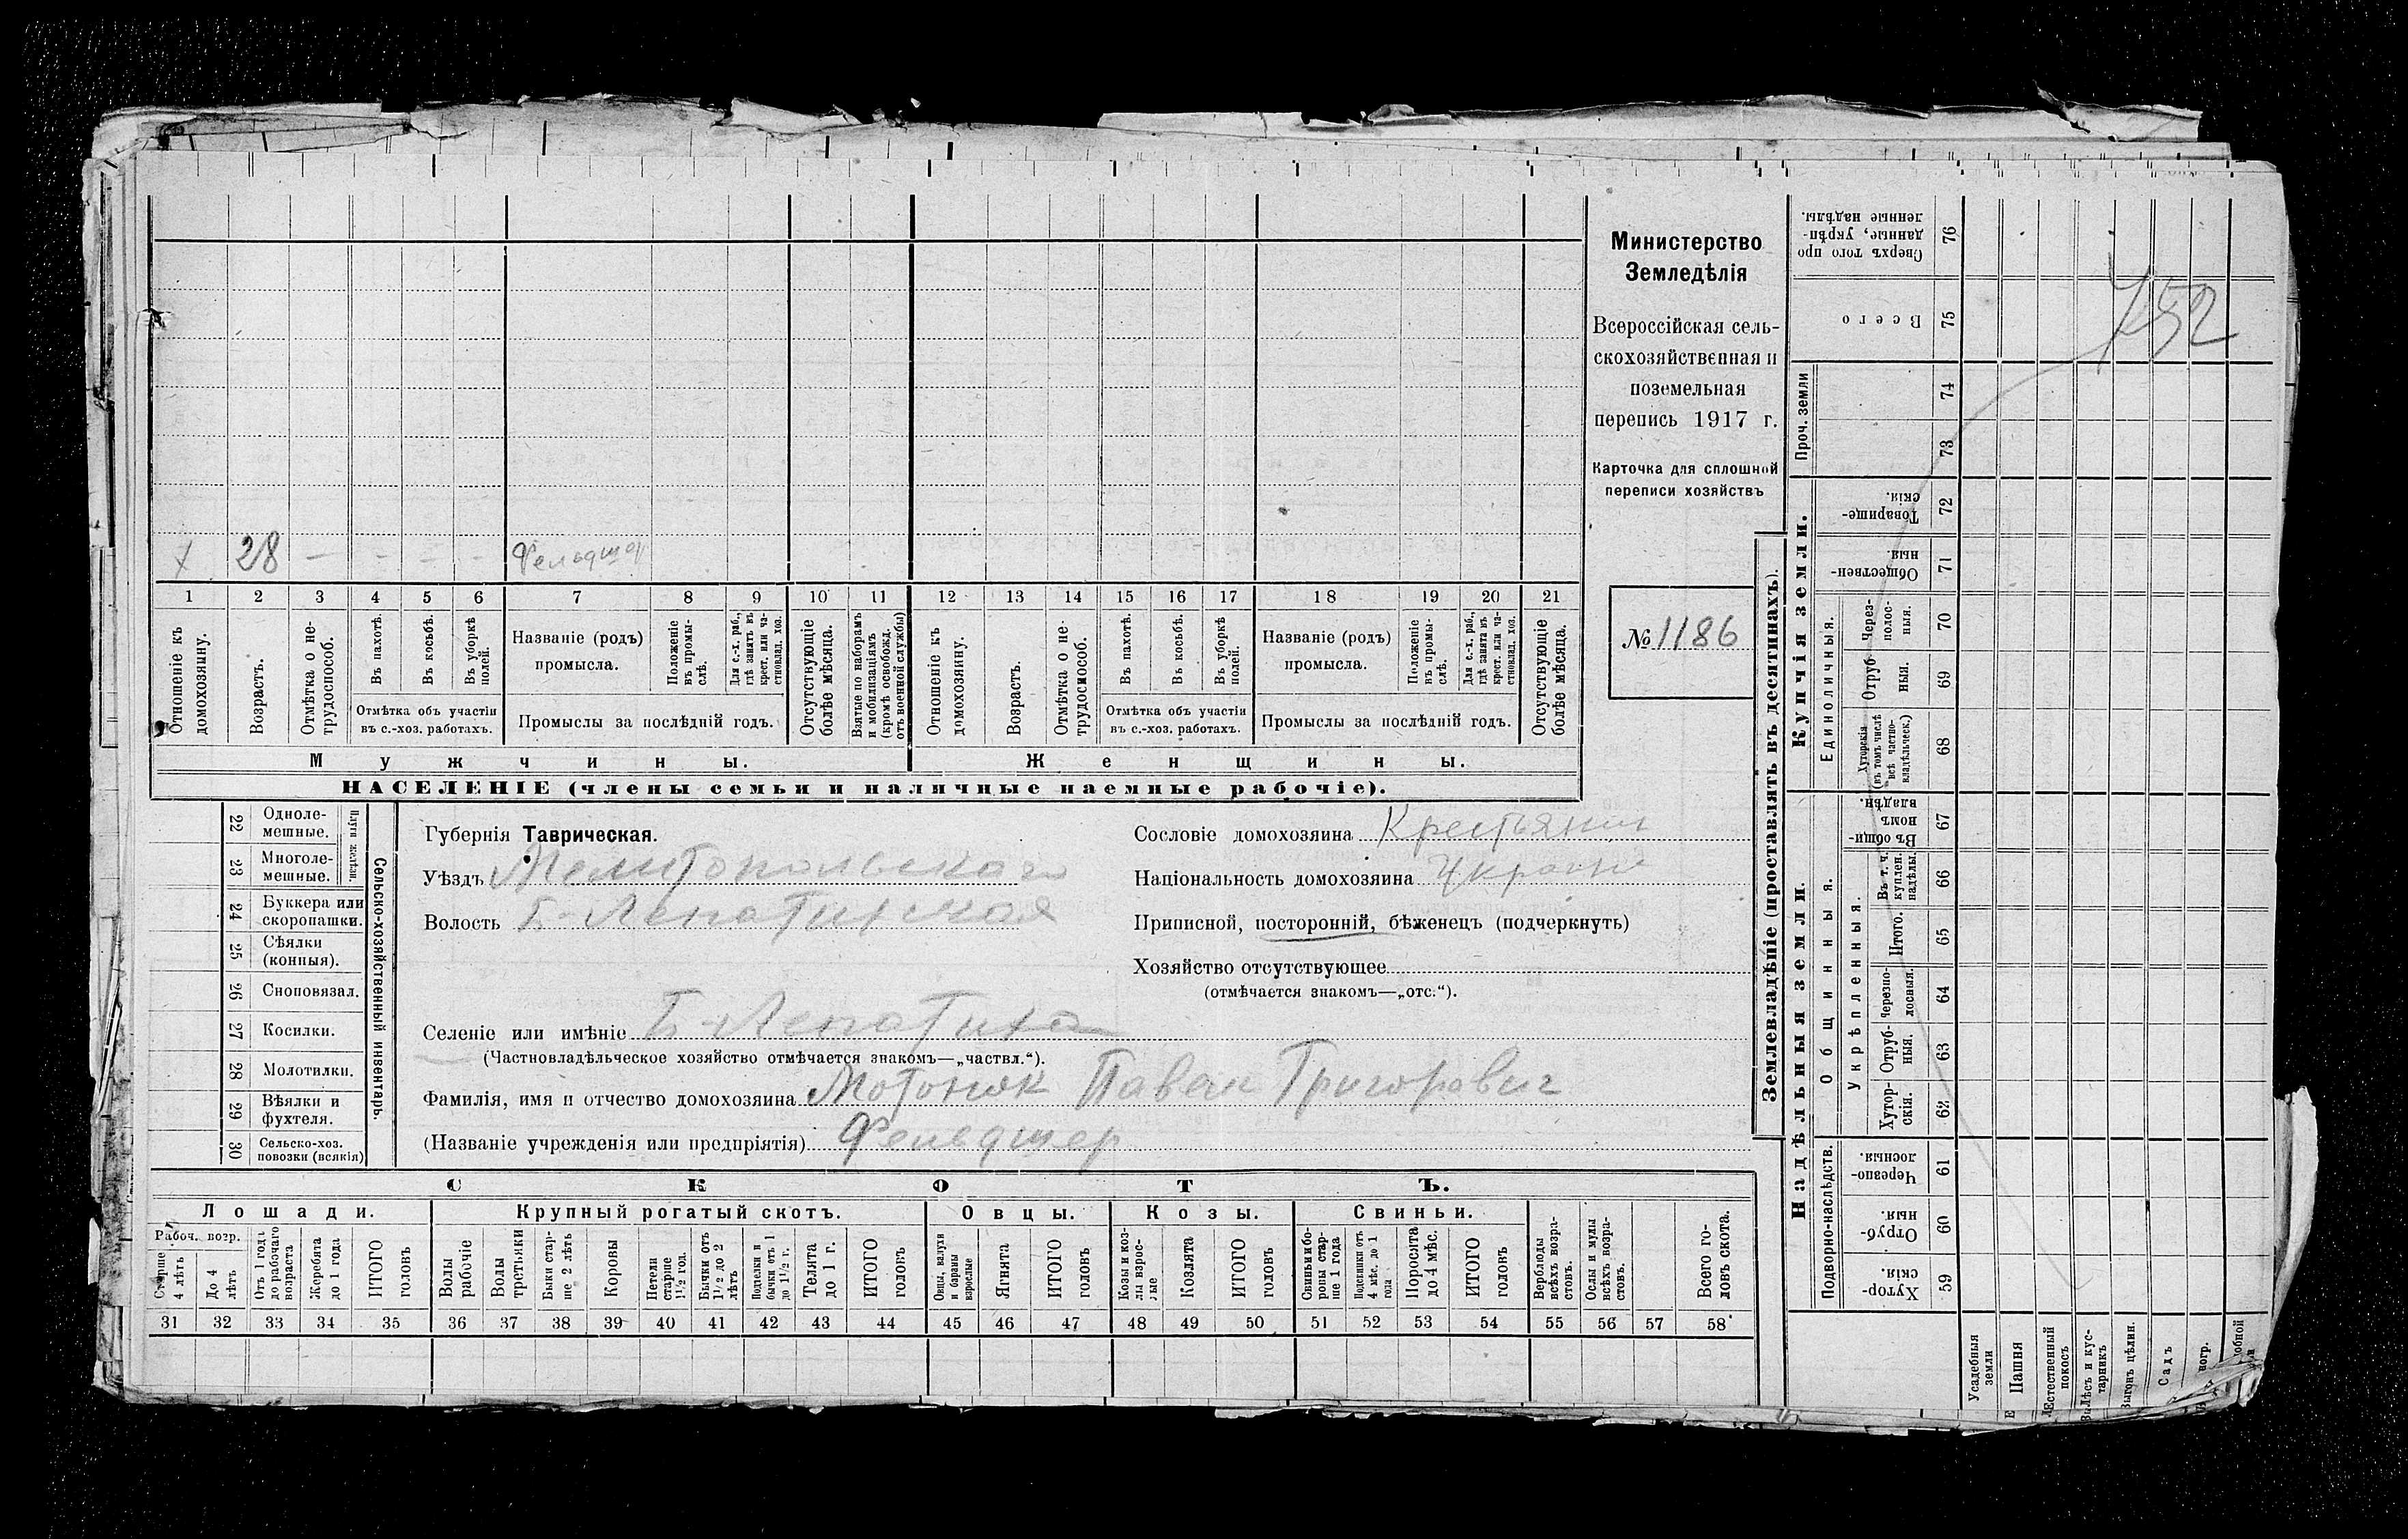 х 28 — - - - Фельдшер
1 2 3 4 5 6 7 8 9 10 11 12 13 14 15 16 17 18 19 20 21
Отношеніе къ домохозяину.
Возрастъ.
Отмѣтка о не-трудоспособ.
Въ пахотѣ.
Въ косьбѣ.
Въ уборкѣ полей.
Отмѣтка объ участіи
въ с.-хоз. работахъ.
Названіе (родъ)
промысла.
Положеніе въ промы-слѣ.
Для с.-х. раб., гдѣ занятъ въ крест. или ча-стновлад. хоз.
Промыслы за послѣдній годъ.
Отсутствующіе болѣе мѣсяца.
Взятые по наборамъ и мобилизаціямъ (кромѣ освобожд. отъ военной службы)
Отношеніе къ домохозяину.
Возрастъ.
Отмѣтка о не-трудоспособ.
Въ пахотѣ.
Въ косьбѣ.
Въ уборкѣ полей.
Отмѣтка объ участіи
въ с.-хоз. работахъ.
Названіе (родъ)
промысла.
Положеніе въ промы-слѣ.
Для с.-х. раб., гдѣ занята въ крест. или ча-стновлад. хоз.
Промыслы за послѣдній годъ.
Отсутствующіе болѣе мѣсяца.
Мужчины. Женщины.
НАСЕЛЕНІЕ (члены семьи и наличные наемные рабочіе).
Министерство
Земледѣлія
Всероссійская сель-
скохозяйственная и
поземельная
перепись 1917 г.
Карточка для сплошной
переписи хозяйствъ
№ 1186
22 Одноле-мешные.
23 Многоле-мешные.
Плуги желѣзн.
24 Буккера или скоропашки.
25 Сѣялки (конныя).
26 Сноповязал.
27 Косилки.
28 Молотилки.
29 Вѣялки и фухтеля.
30 Сельско-хоз. повозки (всякія)
Сельско-хозяйственный инвентарь.
Губернія Таврическая.
Уѣздъ Мелитопольскаго
Волость Б-Лепатихская
Сословіе домохозяина Крестьянин
Національность домохозяина Украин
Приписной, посторонній, бѣженец (подчеркнуть)
Хозяйство отсутствующее
(отмѣчается знакомъ—„отс.“).
Селеніе или имѣніе Б-Лепатиха
(Частновладѣльческое хозяйство отмѣчается знакомъ—„частвл.“).
Фамилія, имя и отчество домохозяина Мотонюк Павел Григоревич
(Названіе учрежденія или предпріятія) Фельдшер
СКОТЪ.
Лошади. Крупный рогатый скотъ. Овцы. Козы. Свиньи.
Рабоч. возр.
Старше 4 лѣтъ
До 4 лѣтъ
Отъ 1 года до рабочаго возраста
Жеребята до 1 года
ИТОГО головъ
Волы рабочіе
Волы третьяки
Быки стар-ше 2 лѣтъ
Коровы
Нетели старше 1½ год.
Бычки отъ 1½ до 2 лѣтъ
Подтелки и бычки отъ 1 до 1½ г.
Телята до 1 г.
ИТОГО головъ
Овцы, валухи и бараны взрослые
Ягнята
ИТОГО головъ
Козы и коз-лы взрос-лые
Козлята
ИТОГО головъ
Свиньи и бо-ровы стар-ше 1 года
Подсвинки отъ 4 мѣс. до 1 года
Поросята до 4 мѣс.
ИТОГО головъ
Верблюды всѣхъ возра-стовъ.
Ослы и мулы всѣхъ возра-стовъ.
Всего го-ловъ скота.
31 32 33 34 35 36 37 38 39 40 41 42 43 44 45 46 47 48 49 50 51 52 53 54 55 56 57 58
Землевладѣніе (проставлять въ десятинахъ).
Купчія земли.
Надѣльныя земли.
Сверхъ того про данные, укрѣп-ленные надѣлы. 76
Всего 75
752
Проч. земли
74
73
Товарище-скія. 72
Обществен-ныя. 71
Единоличныя.
Через-полос-ныя. 70
Отруб-ныя. 69
Хуторскія (въ томъ числѣ всѣ частно-владѣльческ.) 68
Общинныя.
Въ общи-номъ владѣн. 67
Укрѣпленныя.
Въ т. ч. куплен. надѣлы. 66
Итого. 65
Черезпо-лосныя. 64
Отруб-ныя. 63
Хутор-скія. 62
Подворно-наслѣдств.
Черезпо-лосныя. 61
Отруб-ныя. 60
Хутор-скія. 59
Усадебныя земли
Пашня
Естественный покосъ
Лѣсъ и кус-тарникъ
Выгонъ цѣлин.
Садъ